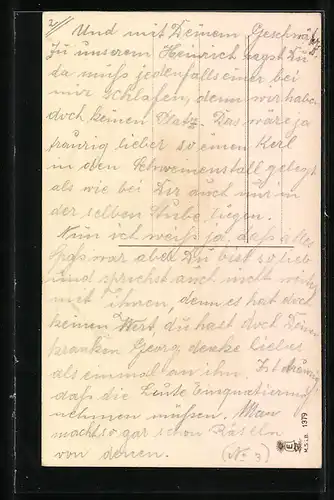 2/
Und mit Deinem Geschwätz
zu unserem Heinrich sagst Du
da muß jedenfalls einer bei
mir schlafen, denn wir haben
doch keinen Platz. Das wäre ja
traurig lieber so einen Kerl
in den Schweinenstall gelegt
als wie bei Dir auch nur in
der selben Stube liegen.
Nun ich weiß ja, daß alles
Spass war aber Du bist so lieb
und sprichst auch nicht
mit ihnen, denn es hat doch
keinen Wert, du hast doch Deinen
kranken Georg, denke lieber
als einmal an ihn. Ist
daß die Leute Einquatierung
nehmen müßen. Man
macht so gar schon Räseln
von denen. (No 3)
M.S.i.B. 1379